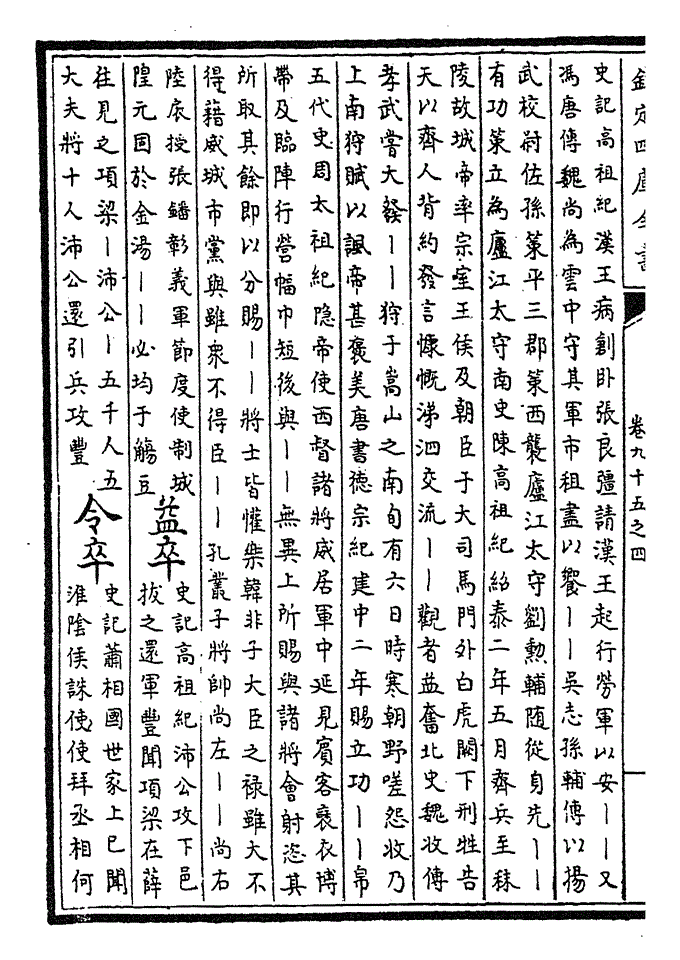 欽定四庫全書
卷九十五之四
史記高祖紀漢王病創卧張良彊請漢王起行勞軍以安丨丨又
馮唐傳魏尚為雲中守其軍市租盡以饗丨丨吳志孫輔傳以揚
武校尉佐孫策平三郡策西襲廬江太守劉勲輔随從身先丨丨
有功策立為廬江太守南史陳高祖紀紹泰二年五月齊兵至秣
陵故城帝率宗室王侯及朝臣于大司馬門外白虎闕下刑牲告
天以齊人背約發言慷慨涕泗交流丨丨觀者益奮北史魏收傳
孝武嘗大發丨丨狩于嵩山之南旬有六日時寒朝野嗟怨收乃
上南狩賦以諷帝甚褒美唐書德宗紀建中二年賜立功丨丨帛
五代史周太祖紀隐帝使西督諸將威居軍中延見賓客褒衣博
帶及臨陣行營幅巾短後與丨丨無異上所賜與諸將會射恣其
所取其餘即以分賜丨丨將士皆懽樂韓非子大臣之禄雖大不
得藉威城市黨與雖衆不得臣丨丨孔叢子將帥尚左丨丨尚右
陸扆授張鐇彰義軍節度使制城
隍元固於金湯丨丨必均于觴豆
益卒
史記高祖紀沛公攻下邑
拔之還軍豐聞項梁在薛
往見之項梁丨沛公丨五千人五
大夫將十人沛公還引兵攻豐
令卒
史記蕭相國世家上已聞
淮陰侯誅使使拜丞相何